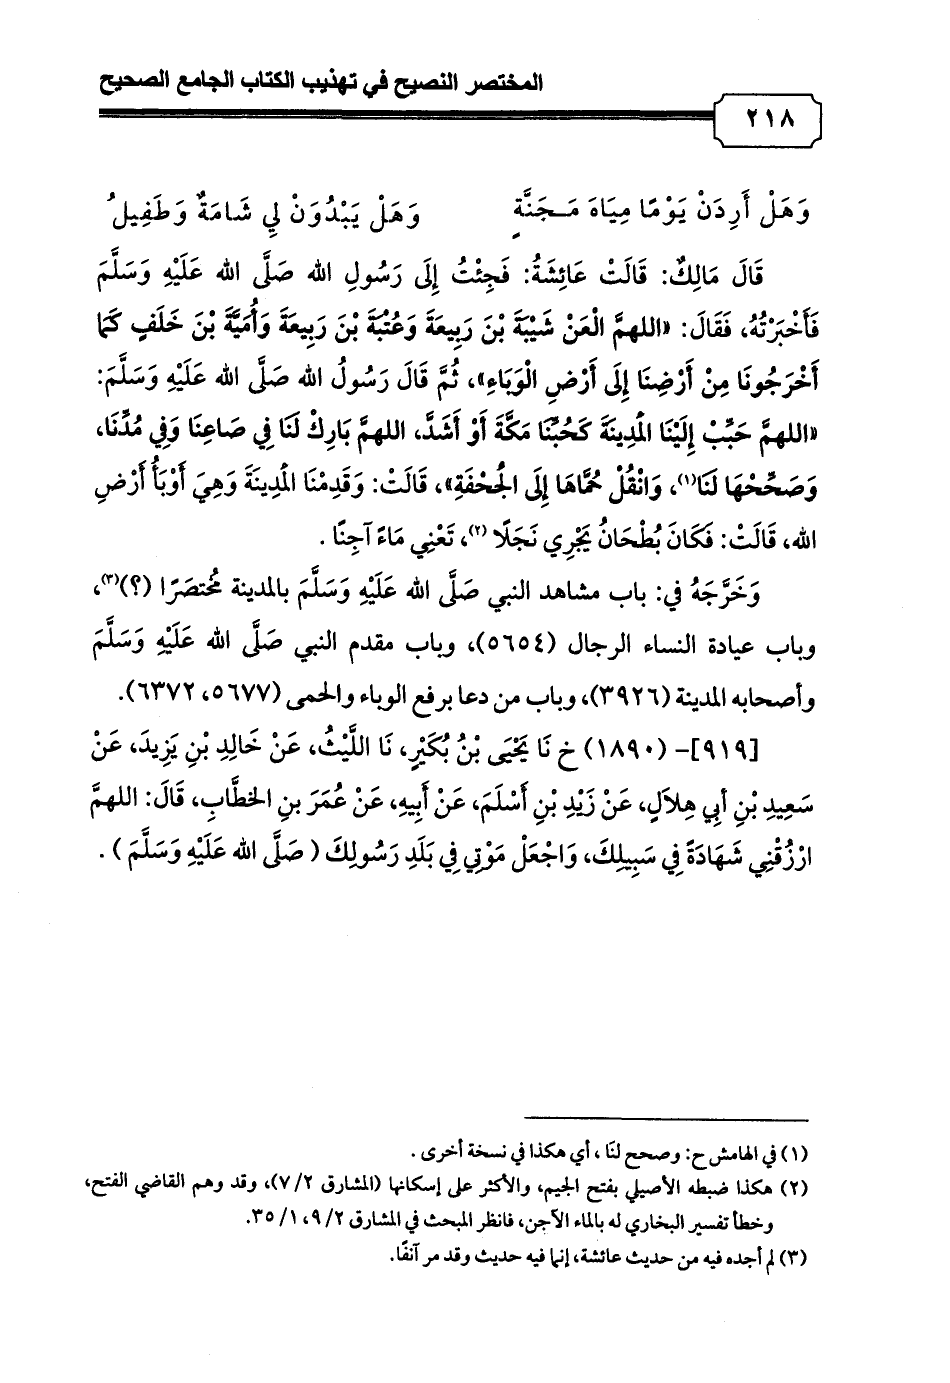 المختصر النصيح في تهذيب الكتاب الجامع الصحيح
٢١٨
وَهَلْ أَرِدَنْ يَوْمًا مِيَاهَ مَـجَنَّةٍ وَهَلْ يَبْدُوَنْ لِي شَامَةٌ وَطَفِيلُ
قَالَ مَالِكٌ: قَالَتْ عَائِشَةُ: فَجِئْتُ إِلَى رَسُولِ الله صَلَّى الله عَلَيْهِ وَسَلَّمَ
فَأَخْبَرْتُهُ، فَقَالَ: «اللهمَّ الْعَنْ شَيْبَةَ بْنَ رَبِيعَةَ وَعُتْبَةَ بْنَ رَبِيعَةَ وَأُمَيَّةَ بْنَ خَلَفٍ كَمَا
أَخْرَجُونَا مِنْ أَرْضِنَا إِلَى أَرْضِ الْوَبَاءِ»، ثُمَّ قَالَ رَسُولُ الله صَلَّى الله عَلَيْهِ وَسَلَّمَ:
«اللهمَّ حَبِّبْ إِلَيْنَا المْدِينَةَ كَحُبِّنَا مَكَّةَ أَوْ أَشَدَّ، اللهمَّ بَارِكْ لَنَا فِي صَاعِنَا وَفِي مُدِّنَا،
وَصَحِّحْهَا لَنَا(١)، وَانْقُلْ حُمَّاهَا إِلَى الْجُحْفَةِ»، قَالَتْ: وَقَدِمْنَا المْدِينَةَ وَهِيَ أَوْبَأُ أَرْضِ
الله، قَالَتْ: فَكَانَ بُطْحَانُ يَجْرِي نَجَلًا (٢)، تَعْنِي مَاءً آجِنًا .
وَخَرَّجَهُ فِي: باب مشاهد النبي صَلَّى الله عَلَيْهِ وَسَلَّمَ بالمدينة مُختصَرًا (؟)(٣)،
وباب عيادة النساء الرجال (٥٦٥٤)، وباب مقدم النبي صَلَّى الله عَلَيْهِ وَسَلَّمَ
وأصحابه المدينة (٣٩٢٦)، وباب من دعا برفع الوباء والحمى (٥٦٧٧، ٦٣٧٢).
[٩١٩]- (١٨٩٠) خ نَا يَحْيَى بْنُ بُكَيْرٍ، نَا اللَّيْثُ، عَنْ خَالِدِ بْنِ يَزِيدَ، عَنْ
سَعِيدِ بْنِ أبِي هِلاَلٍ، عَنْ زَيْدِ بْنِ أَسْلَمَ، عَنْ أَبِيهِ، عَنْ عُمَرَ بنِ الخطَّابِ، قَالَ: اللهمَّ
ارْزُقْنِي شَهَادَةً فِي سَبِيلِكَ، وَاجْعَلْ مَوْتِي فِي بَلَدِ رَسُولِكَ (صَلَّى الله عَلَيْهِ وَسَلَّمَ).
(١) في الهامش ح: وصحح لنَا ، أي هكذا في نسخة أخرى .
(٢) هكذا ضبطه الأصيلي بفتح الجيم، والأكثر على إسكانها (المشارق ٢/ ٧)، وقد وهم القاضي الفتح،
وخطأ تفسير البخاري له بالماء الآجن، فانظر المبحث في المشارق ٢/ ٩، ١/ ٣٥.
(٣) لم أجده فيه من حديث عائشة، إنما فيه حديث وقد مر آنفًا.